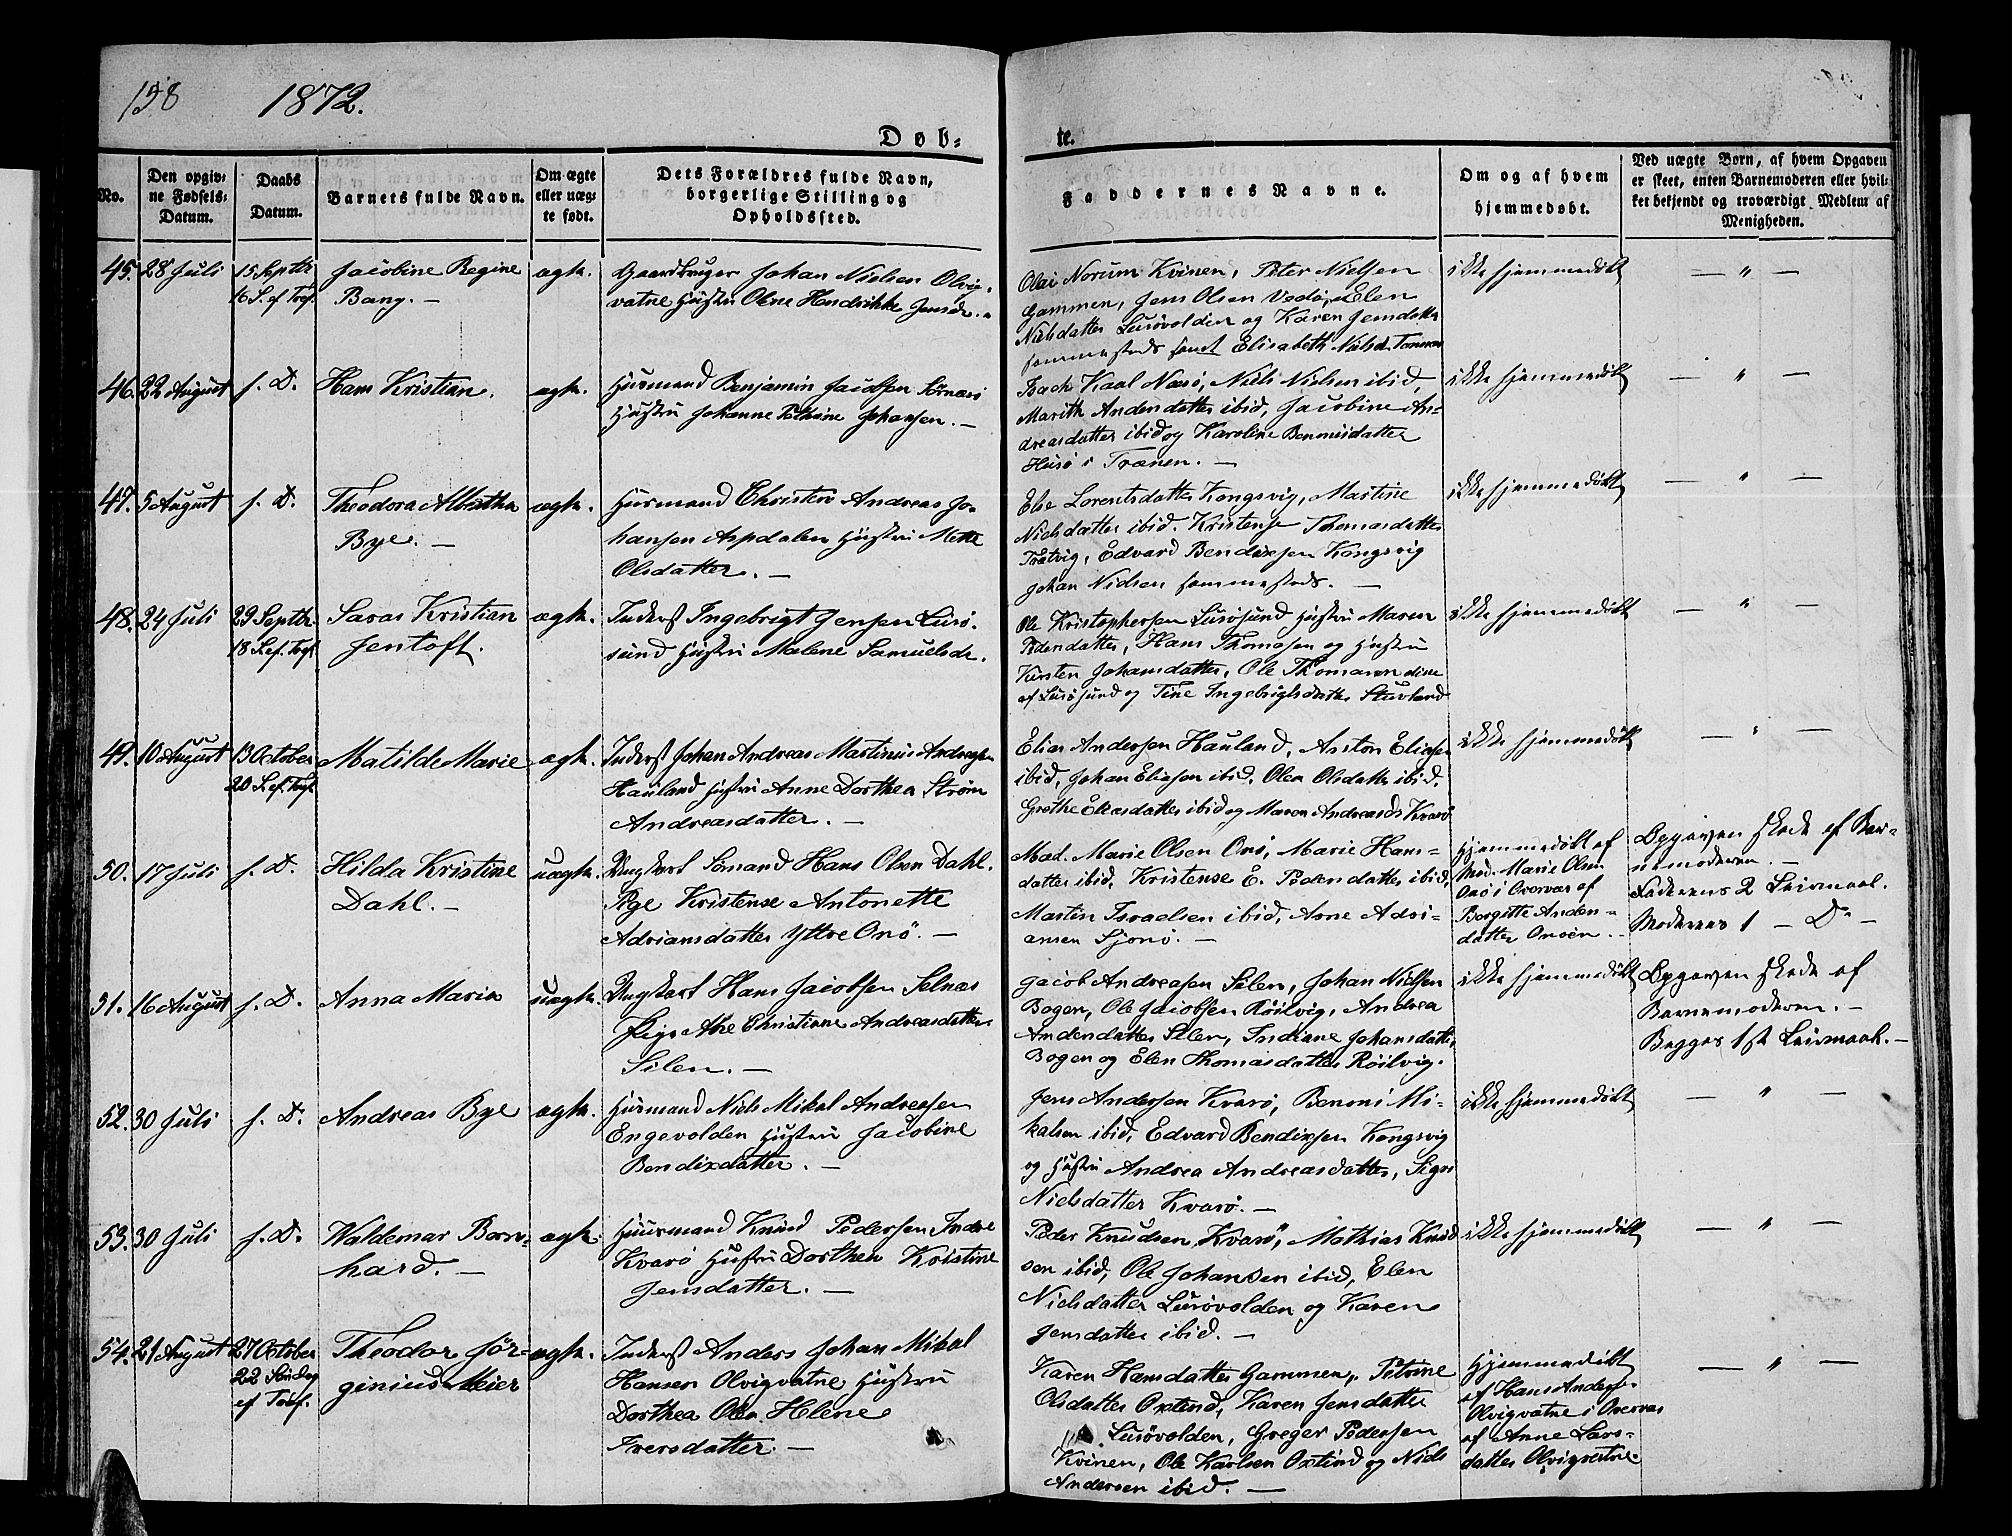 158 1872.
Døb-
te.
No.
Den opgiv-
ne Fødsels-
Datum.
Daabs
Datum.
Barnets fulde Navn.
Om ægte
eller uæg-
te født.
Dets Forældres fulde Navn,
borgerlige Stilling og
Opholdssted.
Faddernes Navne.
Om og af hvem
hjemmedøbt.
Ved uægte Born, af hvem Opgaven
er skeet, enten Barnemoderen eller hvil-
ket bekjendt og troværdigt Medlem af
Menigheden.
45. 28 Juli
15 Septbr
16 S. ef Tref.
Jacobine Regine
Bang. —
ægte.
Gaardbruger Johan Nielsen Olvig-
vatne Hustru Olene Hendrikke Jensdr. "
Olai Norum Kvinen, Peter Nielsen
Gammen, Jens Olsen Vedø, Elen
Nielsdatter Lurøvolden og Karen Jensdatter
sammesteds samt Elisabeth Nielsd.
ikke hjemmedøbt
— " —
46. 22 August
s. D.
Hans Kristian.
ægte.
Husmand Benjamin Jacobsen Sørnæsi
Hustru Johanne Johansen. —
Bach Kaal Næsø, Niels Nielsen ibid,
Marith Andersdatter ibid, Jacobine An-
dreasdatter ibid og Karoline Benonisdatter
Husø i Trænen. —
ikke hjemmedøbt
— " —
47. 5 August
s. D.
Theodora Albertha
Bye. —
ægte.
Husmand Christen Andreas Jo-
hansen Aspdalen Hustru Mette
Olsdatter. —
Else Lorentsdatter Kongsvig, Martine
Nielsdatter ibid. Kristense Thomasdatter
Trætvig, Edvard Bendixsen Kongsvig
Johan Nielsen sammesteds. —
ikke hjemmedøbt
— " —
48. 24 Juli
29 Septbr.
18 S. ef. Tref.
Saras Kristian
Jentoft.
ægte.
Inderst Ingebrigt Jensen Lurø-
sund Hustru Malene Samuelsdr.
Ole Kristophersen Lurøsund Hustru Maren
Pedersdatter, Hans Thomasen og Hustru
Kirsten Johansdatter, Ole Thomasen disse
af Lurøsund og Tine Ingebrigtsdatter Stuvland
ikke hjemmedøbt
— " —
49. 10 August
13 October
20 S. ef. Tref.
Matilde Marie
ægte.
Inderst Johan Andreas Martinus Andreasen
Hauland Hustru Anne Dorthea Strøm
Andreasdatter. —
Elias Andersen Hauland, Anton Eliasen
ibid, Johan Eliasen ibid, Olea Olsdatter ibid,
Grethe Eliasdatter ibid og Maren Andreasd. Kvarø
ikke hjemmedøbt
— " —
50. 17 Juli
s. D.
Hilda Kristine
Dahl. —
uægte.
Ungkarl Sømand Hans Olsen Dahl.
Pige Kristense Antonette
Adriansdatter Yttre Onø. —
Mad. Marie Olsen Onø, Marie Hans-
datter ibid, Kristense E. Pedersdatter ibid,
Martin Israelsen ibid, Arne Adri-
ansen Sjonø. —
Hjemmedøbt af
Mad. Marie Olsen
Onø i Overvær af
Bergitte Anders-
datter Onøen. —
Opgaven skede af Bar-
nemoderen. —
Faderens 2 Leiermaal.
Moderens 1 — Do —
51. 16 August
s. D.
Anna Maria
uægte.
Ungkarl Hans Jacobsen Selnæs
Pige Ane Christiane Andreasdatter
Silen. —
Jacob Andreasen Silen, Johan Nielsen
Bogen, Ole Jacobsen Røilvig, Andrea
Andersdatter Silen, Indiane Johansdatter
Bogen og Elen Thomasdatter Røilvig.
ikke hjemmedøbt
Opgaven skede af
Barnemoderen. —
Begges 1st Leiermaal. —
52. 30 Juli
s. D.
Andreas Bye
ægte.
Husmand Niels Mikal Andreasen
Engevolden Hustru Jacobine
Bendixdatter. —
Jens Andersen Kvarø, Benoni Mi-
kalsen ibid, Edvard Bendixsen Kongsvig
og Hustru Andrea Andreasdatter, Signe
Nielsdatter Kvarø. —
ikke hjemmedøbt
— " —
53. 30 Juli
s. D.
Waldemar Bern-
hard. —
ægte.
Huusmand Knud Pedersen Indre
Kvarø Hustru Dorthea Kristine
Jensdatter. —
Peder Knudsen Kvarø, Mathias Knud-
sen ibid, Ole Johansen ibid, Elen
Nielsdatter Lurøvolden og Karen
Jensdatter ibid. —
ikke hjemmedøbt
— " —
54. 21 August
27 October
22 Søndag
ef Tref.
Theodor Jør-
ginius Meier
ægte.
Inderst Anders Johan Mikal
Hansen Olvigvatne Hustru
Dorthea Olea Helene
Iversdatter. —
Karen Hansdatter Gammen, Petrine
Olsdatter Oxtind, Karen Jensdatter
Lurøvolden, Greger Pedersen
Kvinen, Ole Karlsen Oxtind og Niels
Andersen ibid. —
Hjemmedøbt
af Hans Anders.
Olvigvatne i Overvær
af Anne Lars-
datter Olvigvatne.
— " —